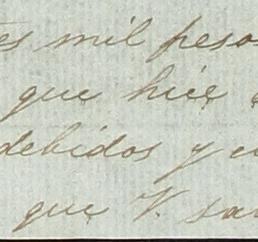 es mil pesos
que hice
debidos y e
que V. sa